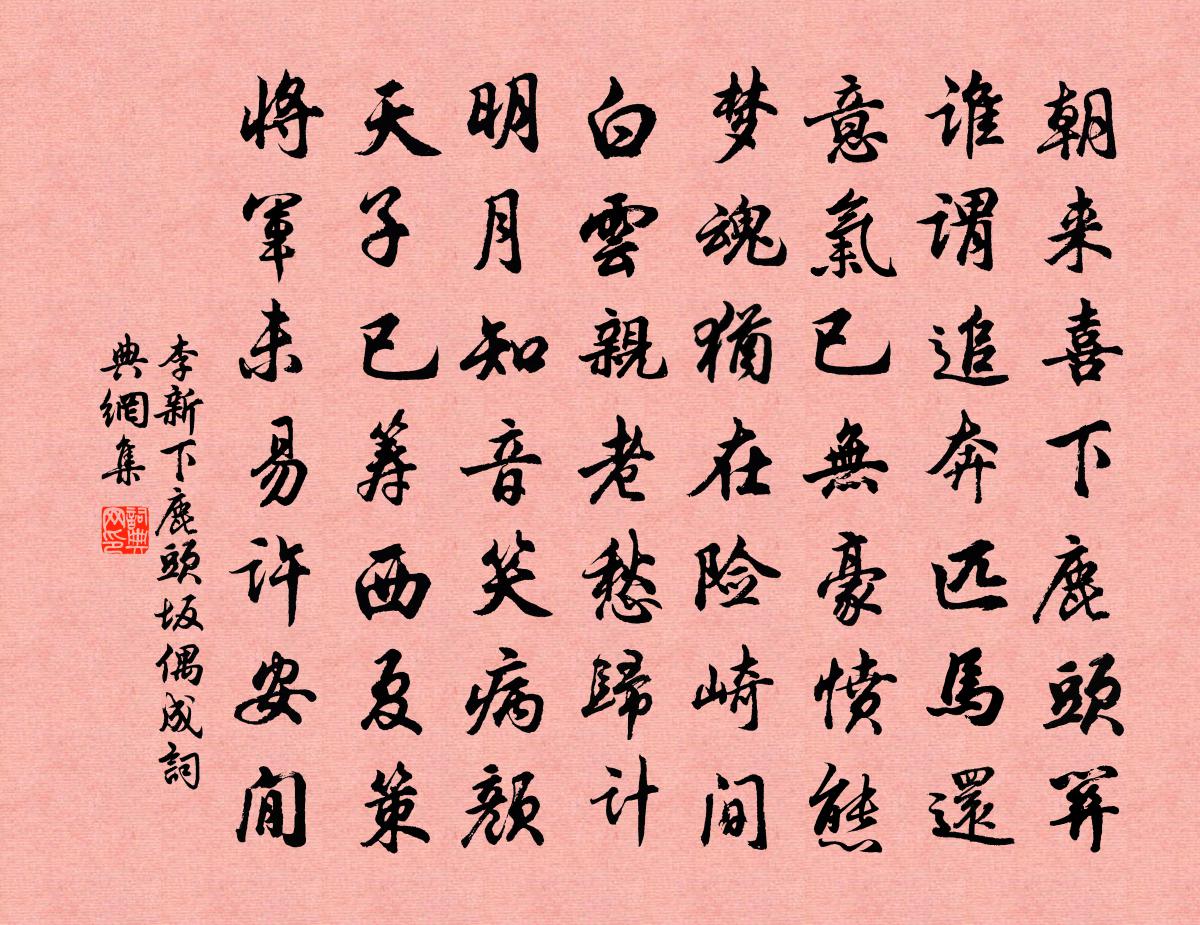 朝来喜下鹿頭關
谁谓追奔匹馬還
意氣已無豪憤態
梦魂猶在险崎間
白雲親老愁歸计
明月知音笑病顏
天子已籌西夏策
将軍未易许安閑
李新下鹿頭坂偶成詞
典網集
詞典网印